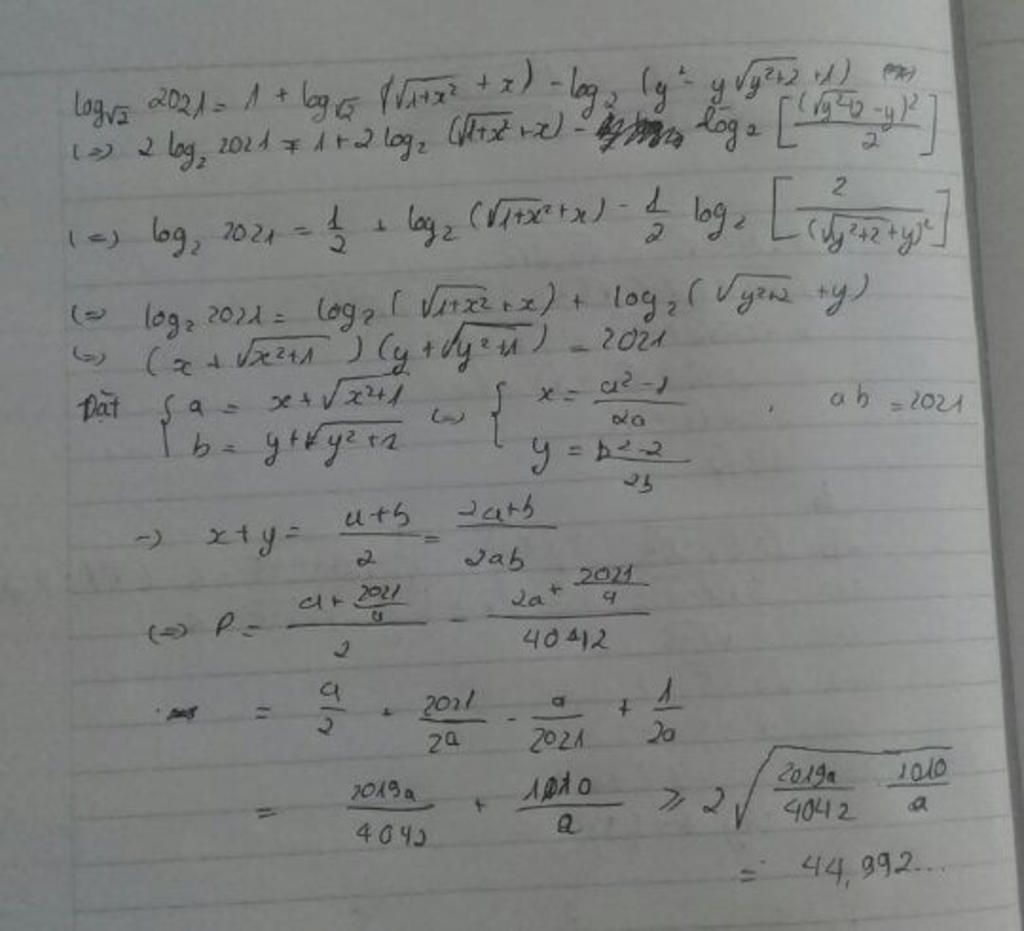 log_√2 2021 = 1 + log_√2 (√(1+x²) + x) - log_2 (y² - y√(y²+2) + 1)
(=) 2 log_2 2021 = 1 + 2 log_2 (√(1+x²) + x) - log_2 [(√(y²+2) - y)² / 2]
(=) log_2 2021 = 1/2 + log_2 (√(1+x²) + x) - 1/2 log_2 [2 / (√(y²+2) + y)²]
(=) log_2 2021 = log_2 (√(1+x²) + x) + log_2 (√(y²+2) + y)
(=) (x + √(x²+1)) (y + √(y²+1)) = 2021
Đặt { a = x + √(x²+1) (=) { x = (a²-1) / 2a , ab = 2021
b = y + √(y²+2) y = (b²-2) / 2b
-> x + y = (a+b) / 2 = (2a+b) / 2ab
(=) P = (a + 2021/a) / 2 - (2a + 2021/a) / 4042
= a/2 + 2021/2a - a/2021 + 1/2a
= 2019a/4042 + 1010/a ⩾ 2√(2019a/4042 1010/a)
= 44,992...